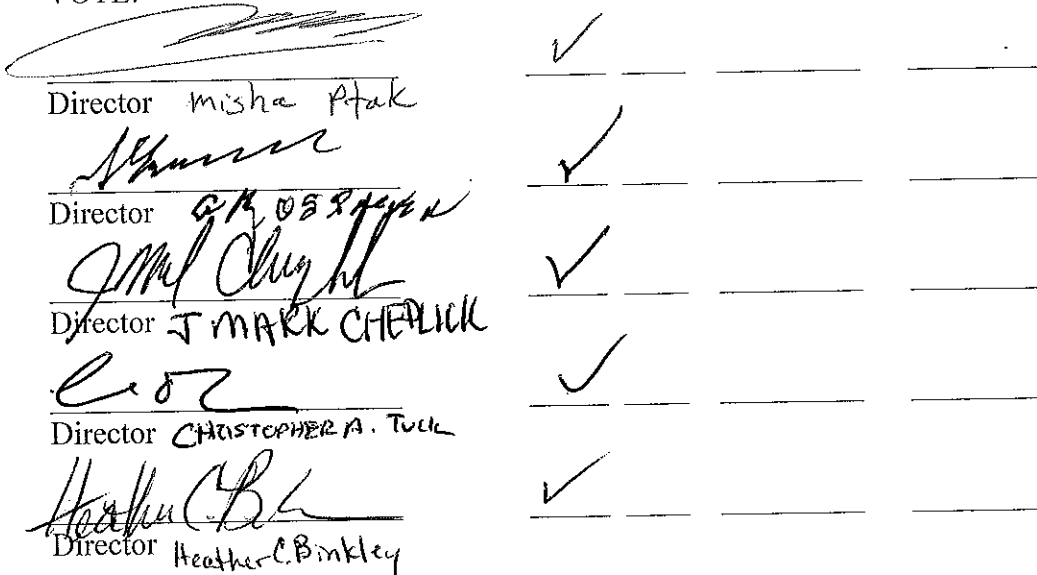 VOTE:
✓
Director Misha Ptak
✓
Director
✓
Director J MARK CHEPLICK
✓
Director CHRISTOPHER A. TULL
✓
Director Heather C. Binkley